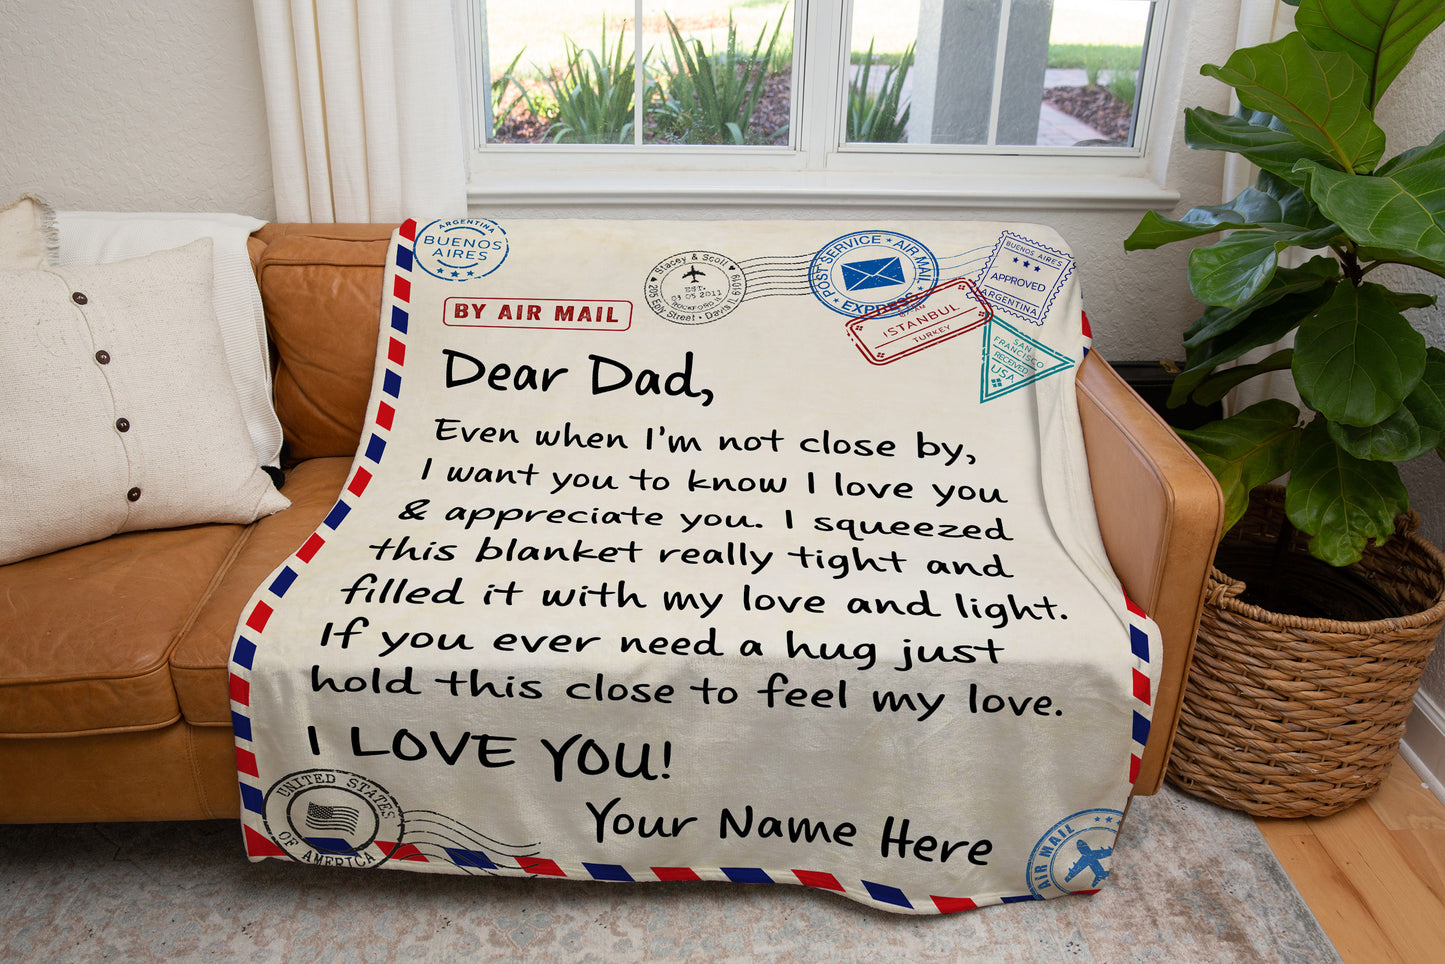 ARGENTINA
BUENOS
AIRES
BY AIR MAIL
Stacey & Scott
EST.
03 05 2011
ROCKFORD IL
205 Eply Street • Davis IL 61019
POST SERVICE ★ AIR MAIL
EXPRESS
BUENOS AIRES
APPROVED
ARGENTINA
ISTANBUL
TURKEY
SAN
FRANCISCO
RECEIVED
USA
Dear Dad,
Even when I'm not close by,
I want you to know I love you
& appreciate you. I squeezed
this blanket really tight and
filled it with my love and light.
If you ever need a hug just
hold this close to feel my love.
I LOVE YOU!
Your Name Here
UNITED STATES
OF AMERICA
AIR MAIL